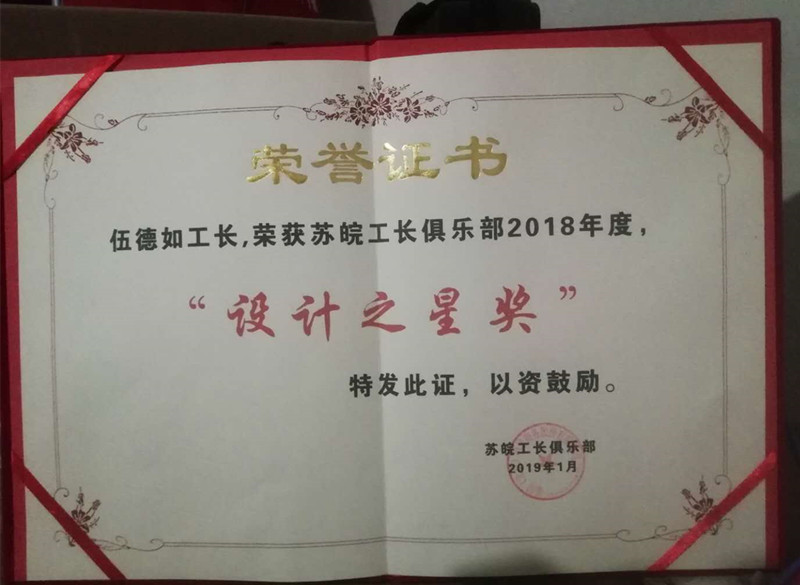 荣誉证书
伍德如工长,荣获苏皖工长俱乐部2018年度，
“设计之星奖”
特发此证，以资鼓励。
苏皖工长俱乐部
2019年1月